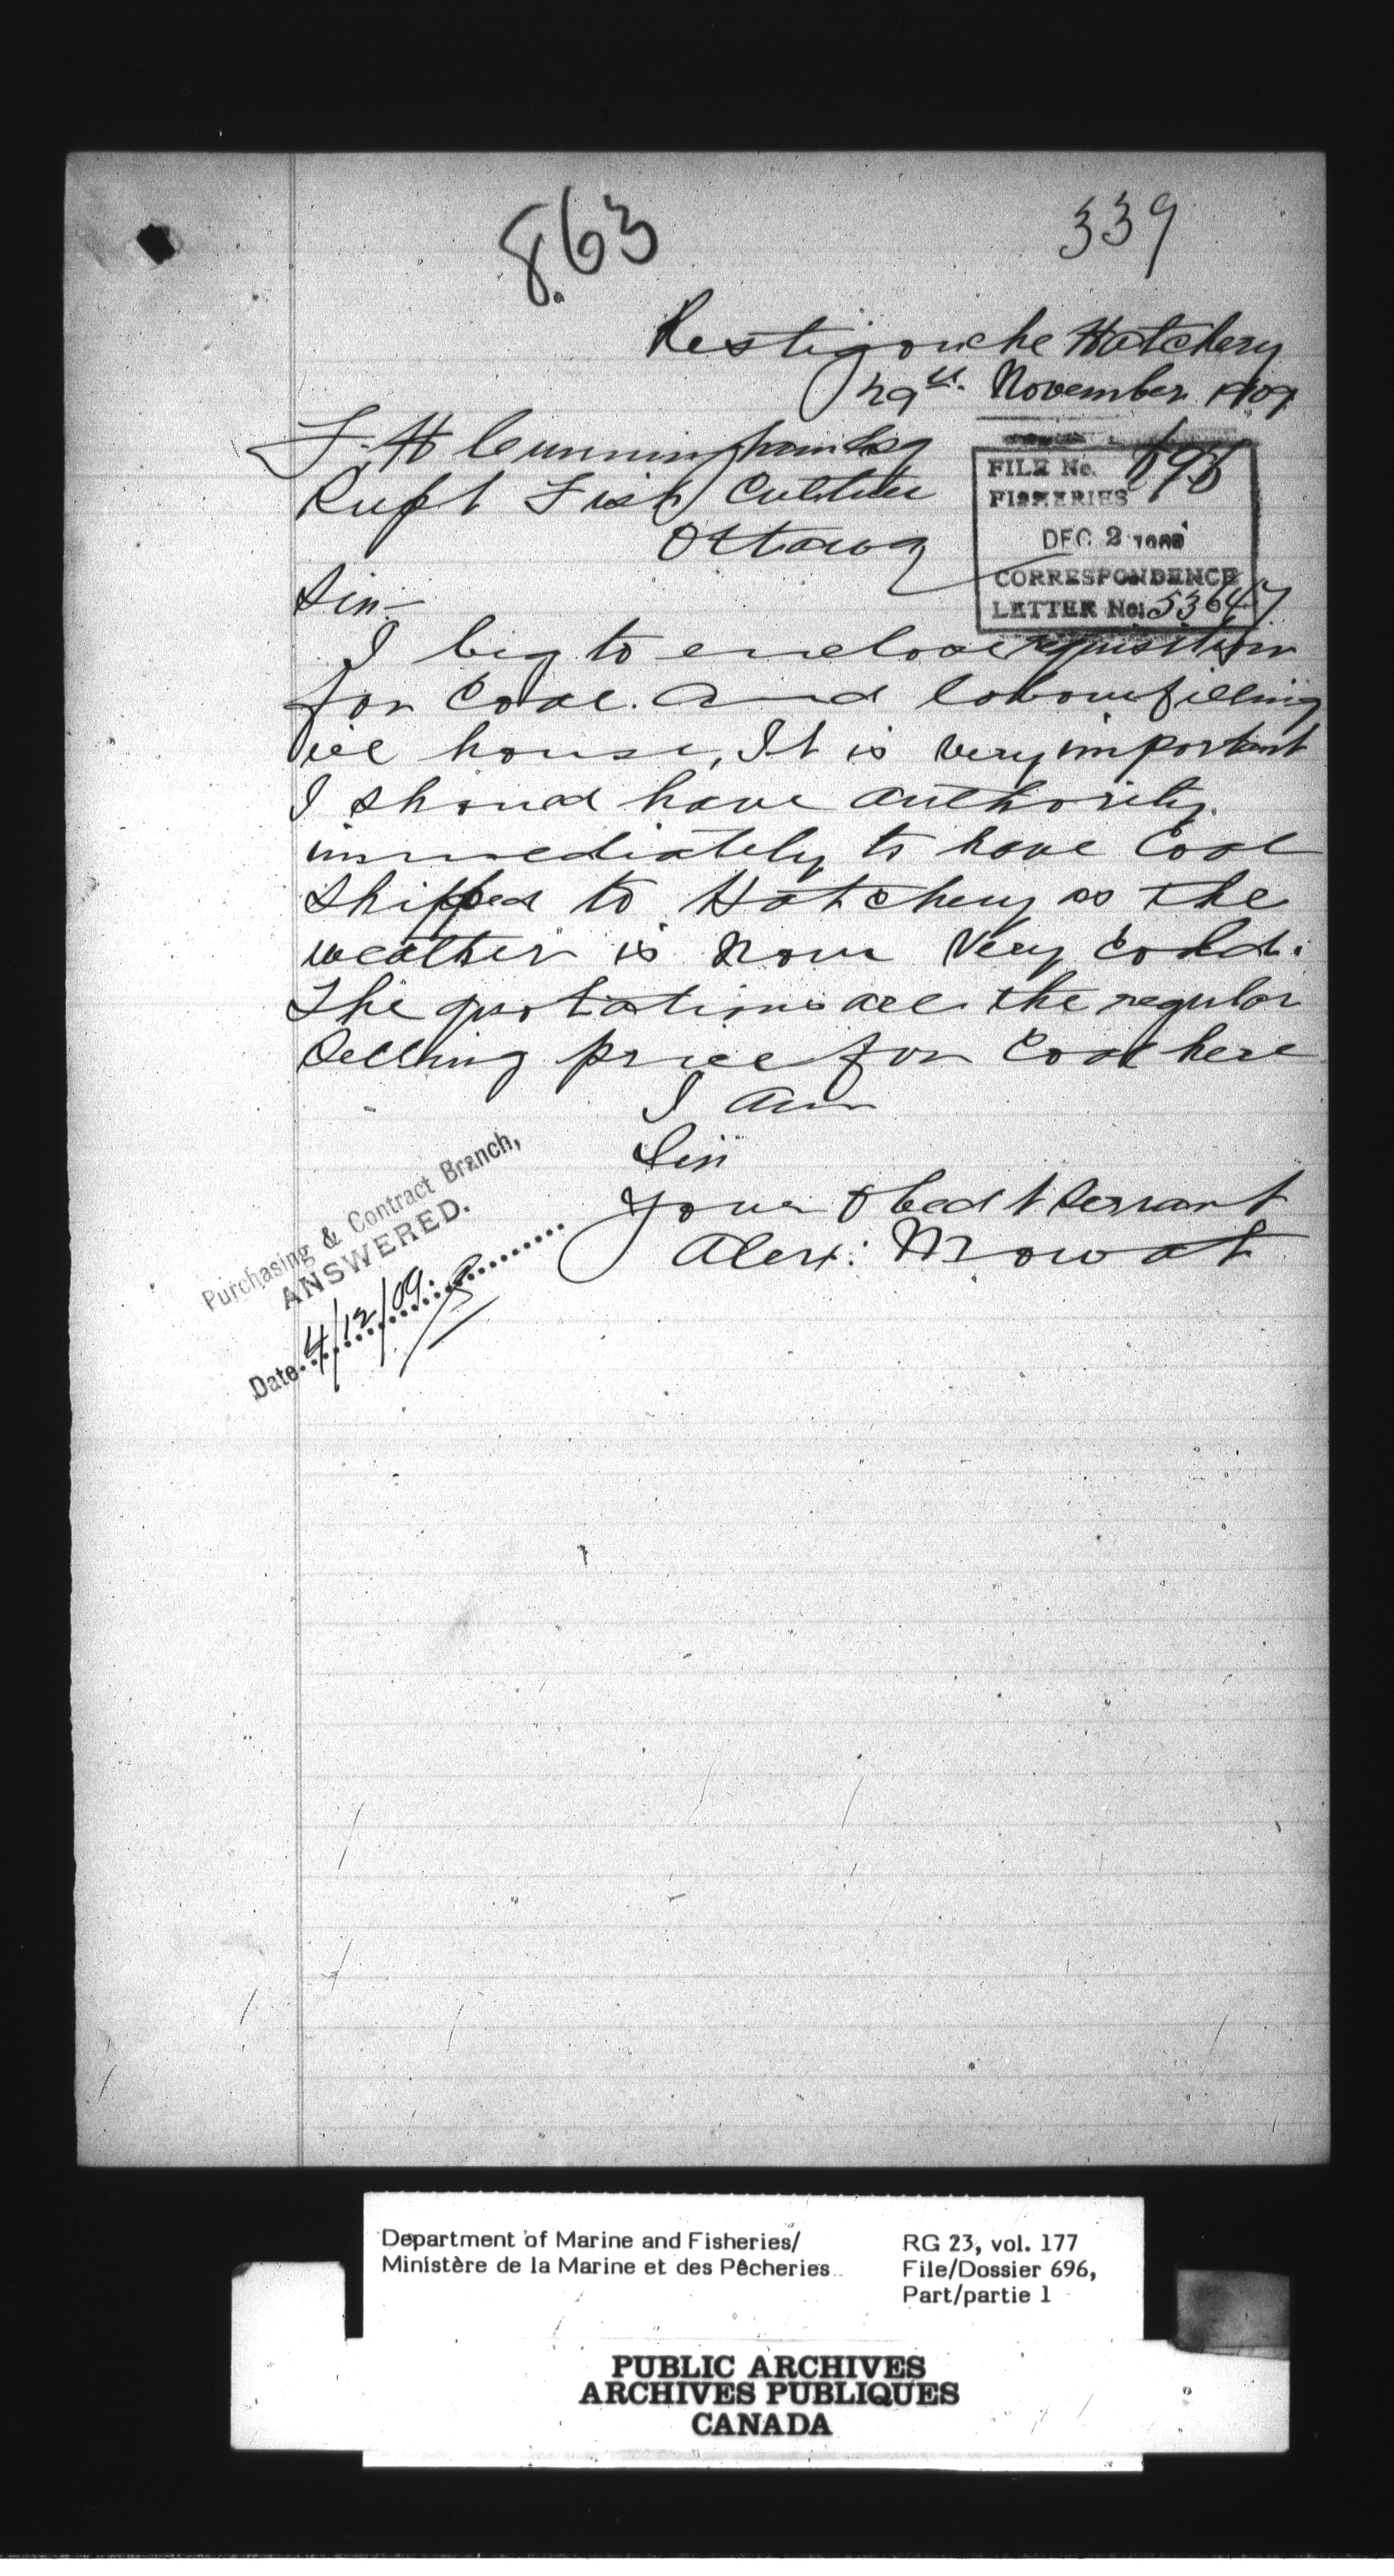 863
339
Restigouche Hatchery
29th November 1909
F. H. Cunningham Esq
Supt Fish Culture
Ottawa
FILE No. 696
FISHERIES
DEC 2 1909
CORRESPONDENCE
LETTER No. 53647
Sir—
I beg to enclose requisition
for Coal. and labour filling
ice house, It is very important
I should have authority
immediately to have Coal
shipped to Hatchery as the
weather is now very cold.
The quotations are the regular
selling price for Coal here
I am
Sir
Your Obedt Servant
Alex: Mowat
Purchasing & Contract Branch,
ANSWERED.
Date 4/12/09
Department of Marine and Fisheries/
Ministère de la Marine et des Pêcheries
RG 23, vol. 177
File/Dossier 696,
Part/partie 1
PUBLIC ARCHIVES
ARCHIVES PUBLIQUES
CANADA